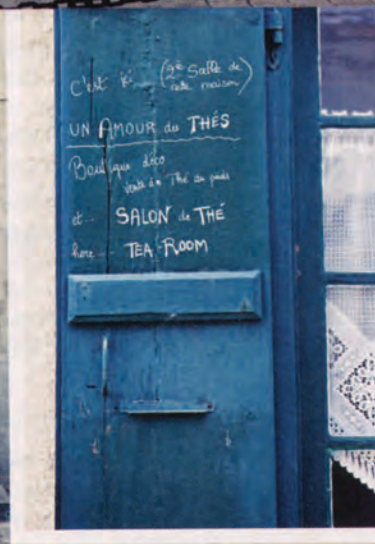 C'est ici (2è Salle de
cette maison)
UN AMOUR des THÉS
Boutique déco
vente de Thé au poids
et... SALON de THÉ
here... TEA-ROOM